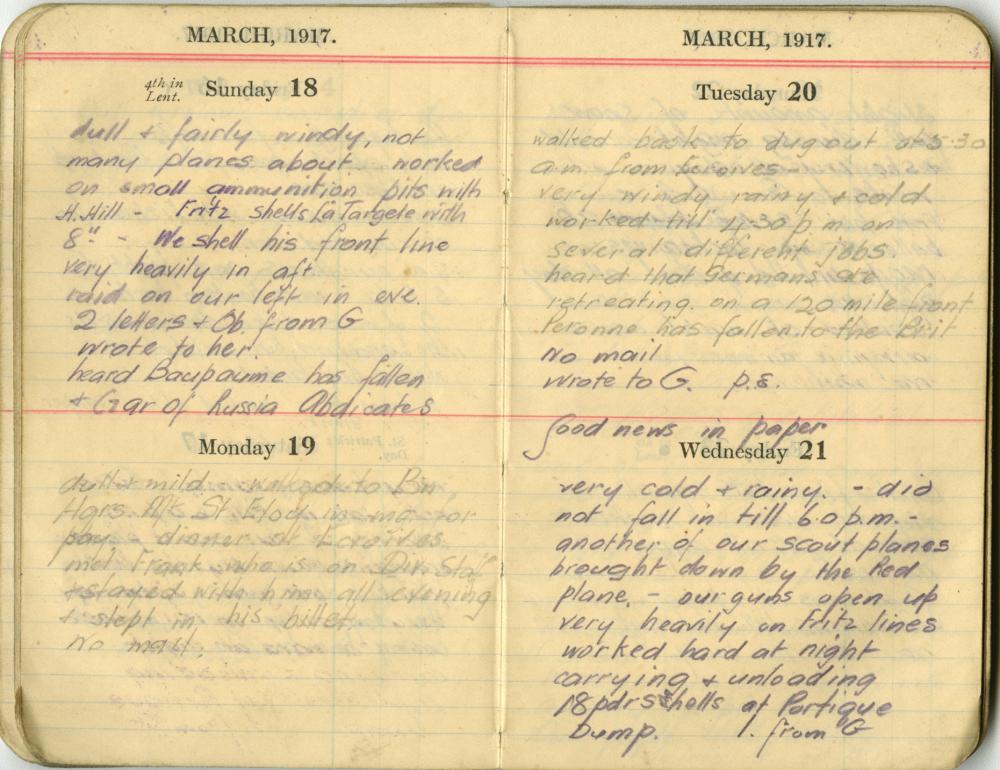 MARCH, 1917.
4th in Lent. Sunday 18
dull + fairly windy, not
many planes about. worked
on small ammunition pits with
H. Hill - Fritz shells La Targete with
8" - We shell his front line
very heavily in aft.
raid on our left in eve.
2 letters + Ob. from G
wrote to her.
heard Baupaume has fallen
+ Czar of Russia Abdicates
Monday 19
dull + mild. - walked to Bn.
Hqrs. Mt. St Eloy in mg. for
pay - dinner at Ecoivres
met Frank who is on Div. Staff
+ stayed with him all evening
+ slept in his billet.
No mail.
MARCH, 1917.
Tuesday 20
walked back to dugout at 5.30
a.m. from Ecoivres -
very windy rainy + cold
worked till 4-30 p.m on
several different jobs.
heard that Germans are
retreating on a 120 mile front
Peronne has fallen to the Brit
No mail
wrote to G. p.s.
Good news in paper
Wednesday 21
very cold + rainy. - did
not fall in till 6.0 p.m. -
another of our scout planes
brought down by the Red
plane. - our guns open up
very heavily on Fritz lines
worked hard at night
carrying + unloading
18 pdrs shells at Portique
Dump. 1. from G